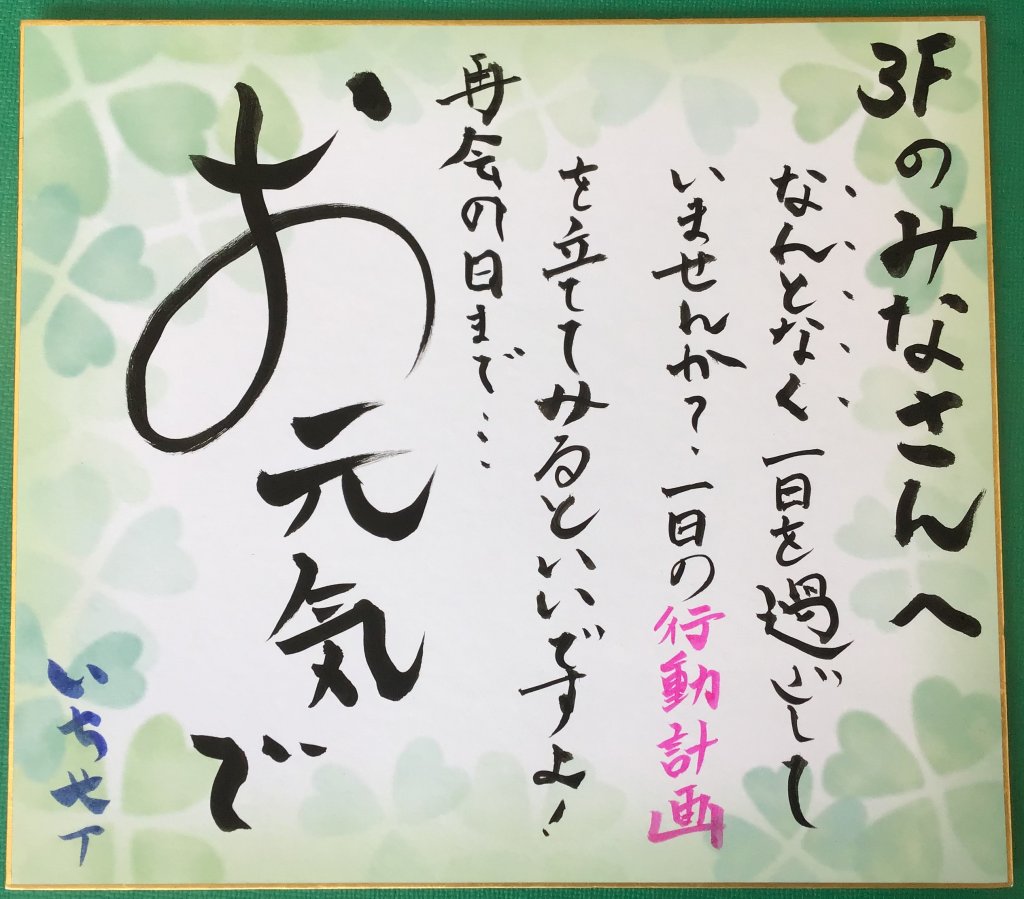 3Fのみなさんへ
なんとなく一日を過ごして
いませんか?一日の行動計画
を立ててみるといいですよ!
再会の日まで…
お元気で
いちせT